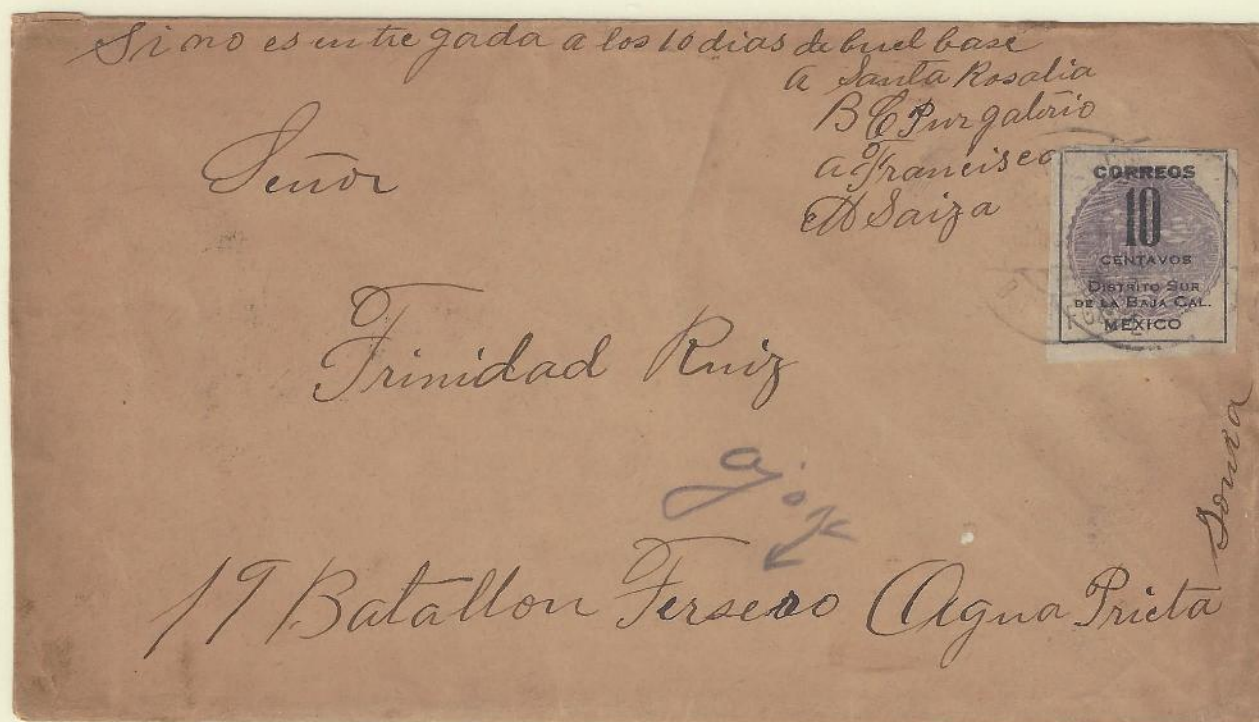 Si no es entregada a los 10 dias debuelbase
a Santa Rosalia
B C Purgatorio
a Francisco
Saiza
Señor
CORREOS
10
CENTAVOS
DISTRITO SUR
DE LA BAJA CAL.
MEXICO
Trinidad Ruiz
17 Batallon Tersero Agua Prieta
Sonora